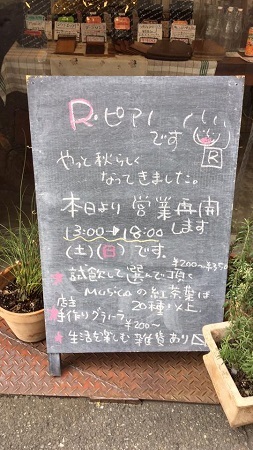 R・ピアノ
です
R
やっと秋らしく
なってきました。
本日より営業再開
します
13:00→18:00
(土)(日)です。
¥200~¥350
★試飲して選んで頂く
Musicaの紅茶葉は
20種以上。
店主
★手作りグラノーラ
¥200~
★生活を楽しむ雑貨あり